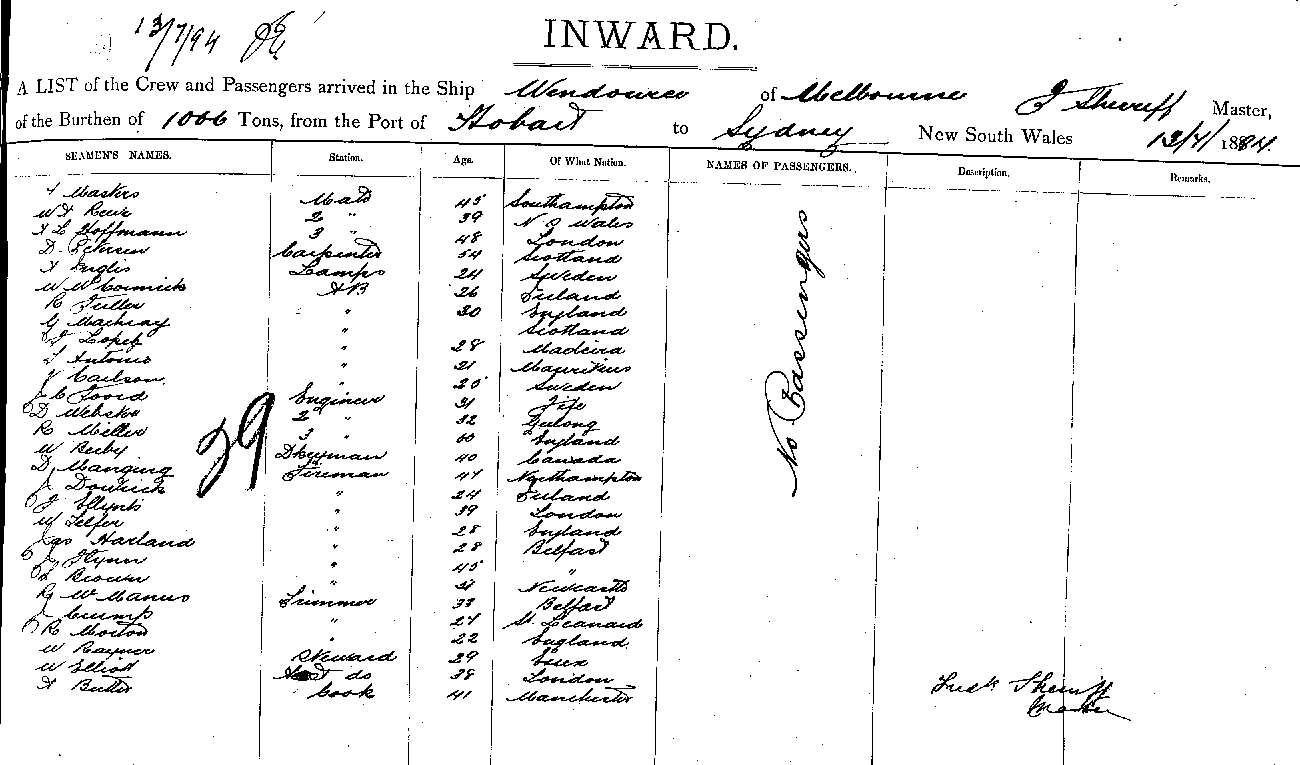 13/7/94
INWARD.
A LIST of the Crew and Passengers arrived in the Ship Wendouree of Melbourne J Sherriff Master,
of the Burthen of 1006 Tons, from the Port of Hobart to Sydney New South Wales 13/7/1894
SEAMEN'S NAMES. Station. Age. Of What Nation. NAMES OF PASSENGERS. Description. Remarks.
Masters Mate 45 Southampton
W H 2 " 39 N S Wales
A L Hoffmann 3 " 48 London
D. Petersen Carpenter 54 Scotland
A Inglis Lamps 24 Sweden
W McCormick AB 26 Ireland
R Fuller " 30 England
G Mackay " Scotland
J Lopez " 28 Madeira
Antonio " 21 Mauritius
Carlson " 25 Sweden
J C Foord Engineer 31 Fife
D Webster 2 " 32 Geelong
R Miller 3 " 60 England
W Beeby Dkeyman 40 Canada
D Fireman 47 Northampton
J Dowrick " 24 Ireland
J " 39 London
W Telfer " 28 England
Jas Harland " 28 Belfast
J Flynn " 45 "
Brown " 31 Newcastle
R McManus Trimmer 33 Belfast
J Crump " 24 St Leonards
R Morton " 22 England
W Rayner Steward 29 Essex
W Elliott Asst do 38 London
A Butler Cook 41 Manchester
29
No Passengers
Fredk Sherriff
Master